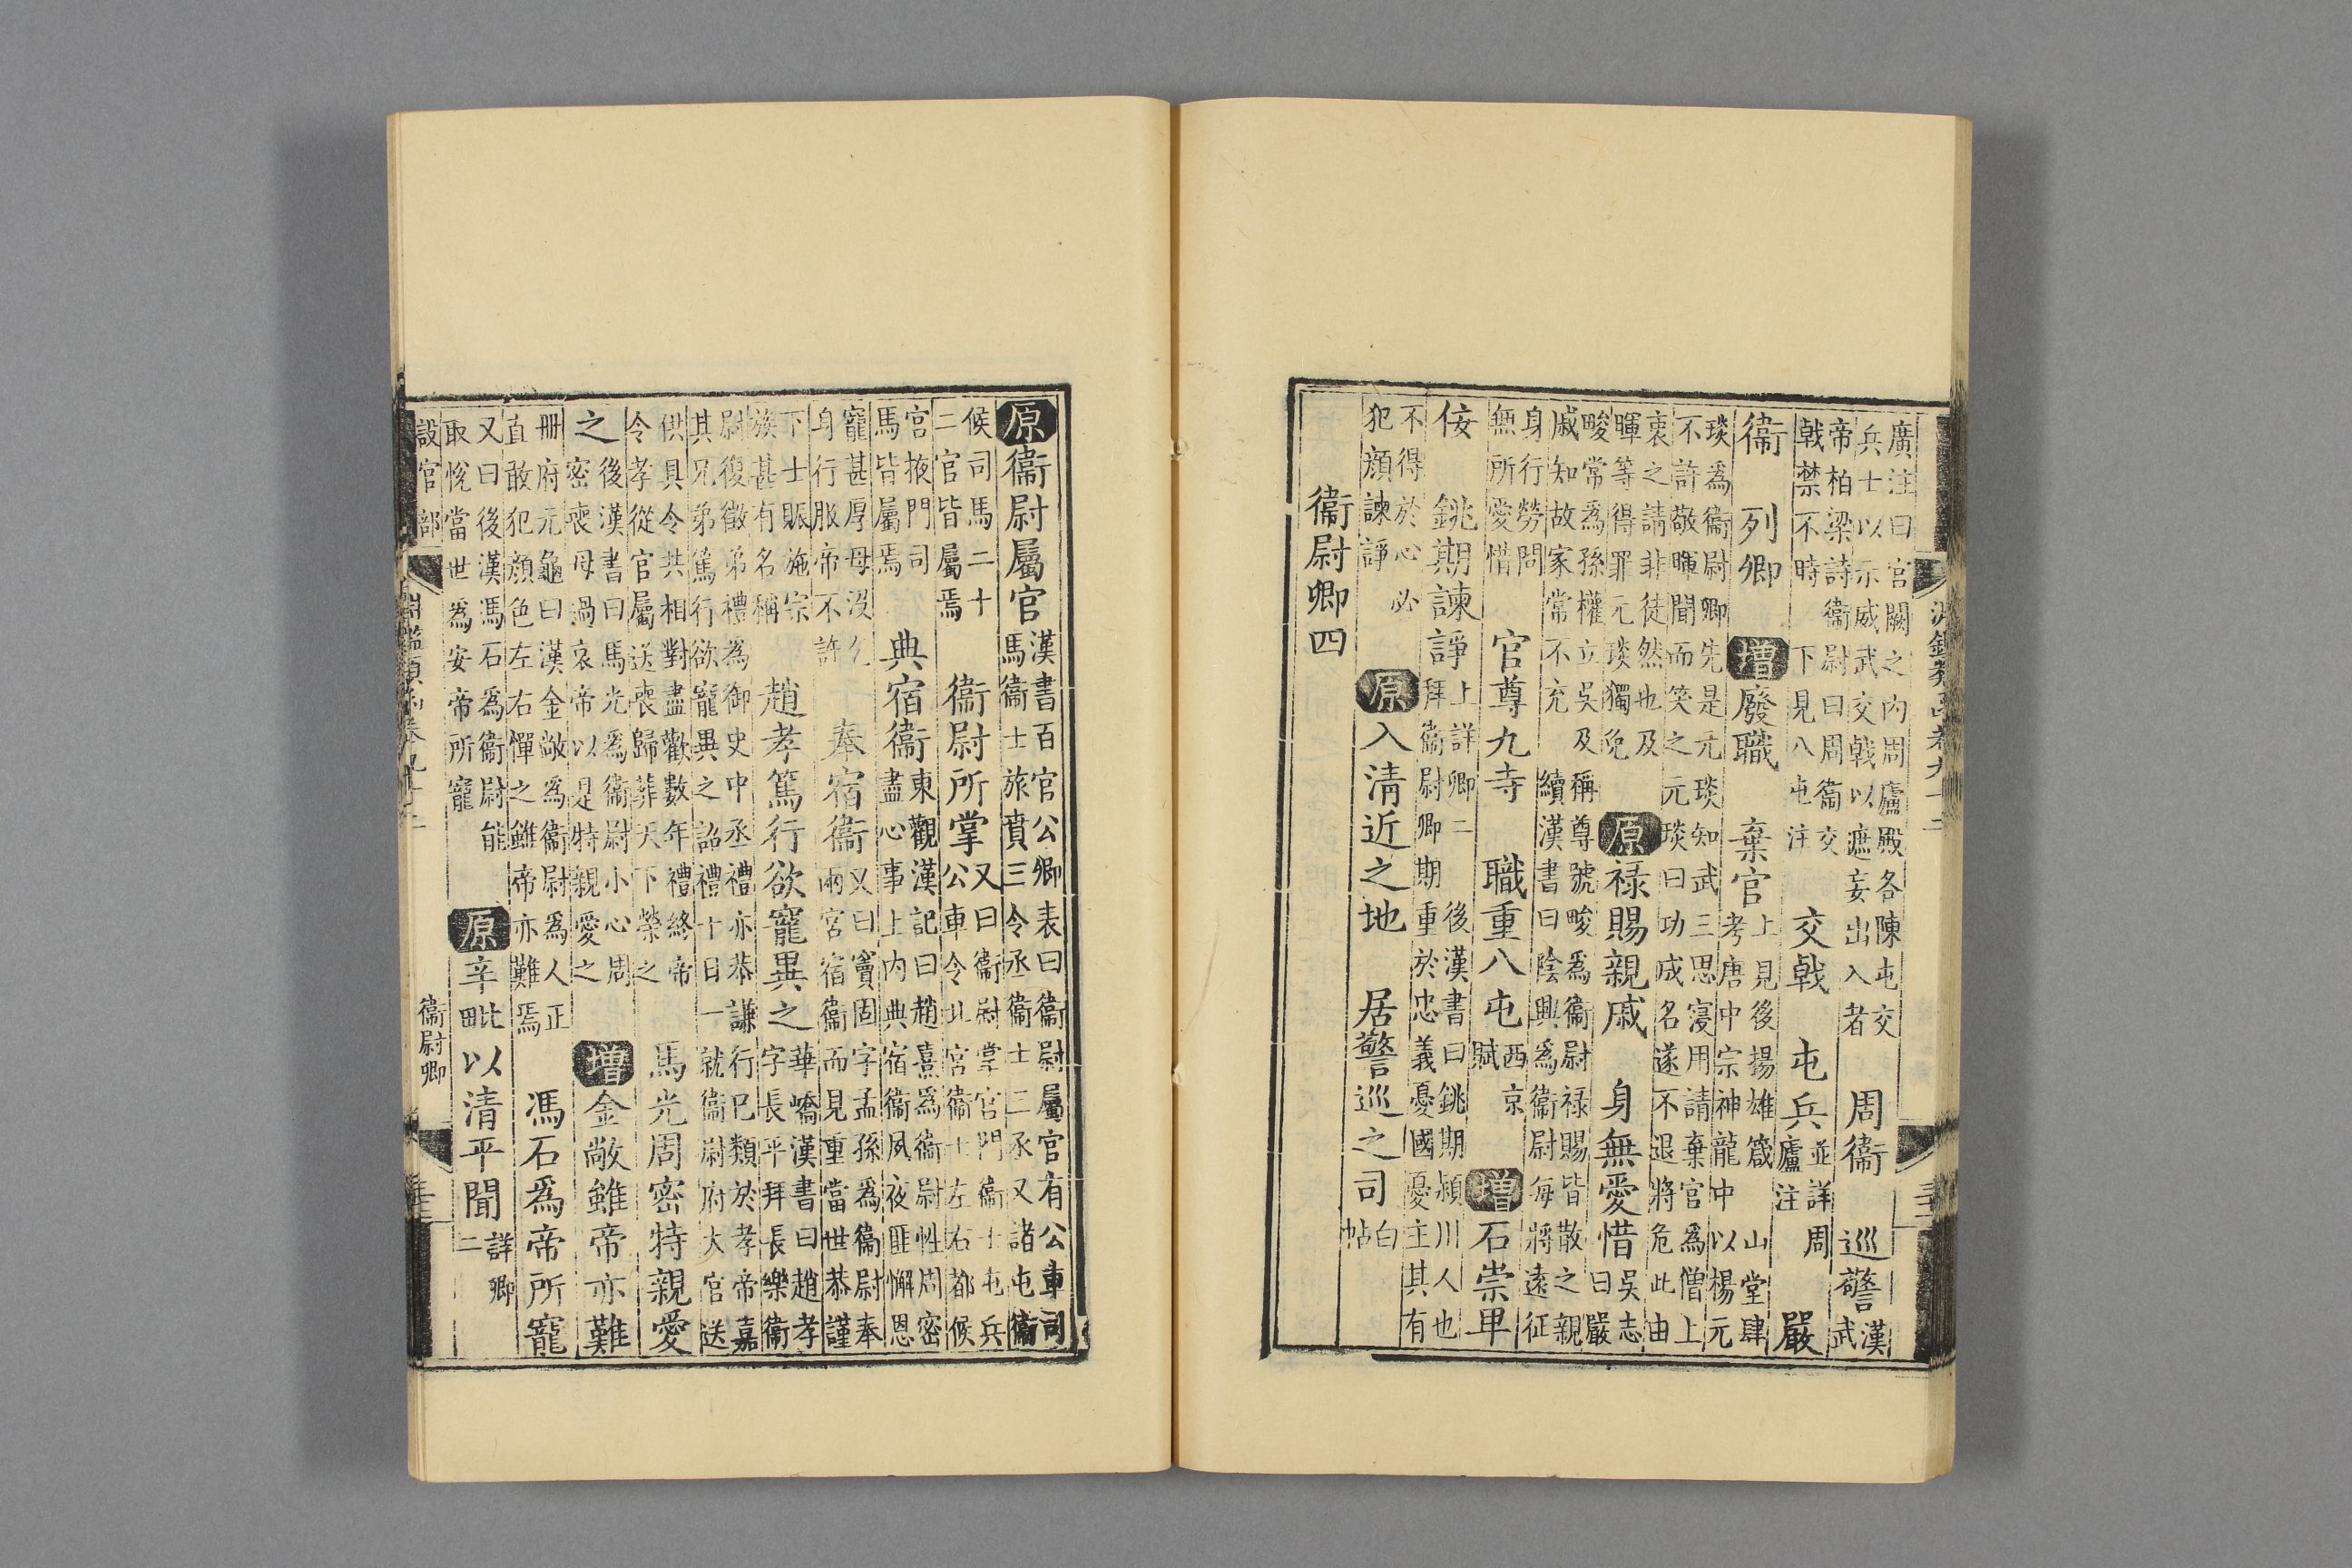 廣注曰宮闕之內周廬殿各陳屯交
兵士以示威武交戟以遮妄出入者
周衛　巡警漢武
帝柏梁詩衛尉曰周衛交
戟禁不時下見八屯注
交戟　屯兵並詳周廬注　嚴
衛　列卿　增廢職　棄官上見後揚雄箴　山堂肆
考唐中宗神龍中以楊元
琰為衛尉卿先是元琰知武三思寖用請棄官為僧上
不許敬暉聞而笑之元琰曰功成名遂不退將危此由
衷之請非徒然也及
暉等得罪元琰獨免
原祿賜親戚　身無愛惜吳志曰嚴
畯常為孫權立吳及稱尊號畯為衛尉祿賜皆散之親
戚知故家常不充　續漢書曰陰興為衛尉每將遠征
身行勞問
無所愛惜
官尊九寺　職重八屯西京賦　增石崇卑
佞　銚期諫諍上詳卿二　後漢書曰銚期潁川人也
拜衛尉卿期重於忠義憂國憂主其有
不得於心必
犯顏諫諍
原入清近之地　居警巡之司白帖
衛尉卿四
原衛尉屬官漢書百官公卿表曰衛尉屬官有公車司
馬衛士旅賁三令丞衛士三丞又諸屯衛
候司馬二十
二官皆屬焉
衛尉所掌又曰衛尉掌宮門衛士屯兵
公車令北宮衛士左右都候
宮掖門司
馬皆屬焉
典宿衛東觀漢記曰趙熹為衛尉性周密
盡心事上內典宿衛夙夜匪懈恩
寵甚厚母沒乞
身行服帝不許
奉宿衛又曰竇固字孟孫為衛尉奉
兩宮宿衛而見重當世恭謹
下士賑施宗
族甚有名稱
趙孝篤行欲寵異之華嶠漢書曰趙孝
字長平拜長樂衛
尉復徵弟禮為御史中丞禮亦恭謙行已類於孝帝嘉
其兄弟篤行欲寵異之詔禮十日一就衛尉府大官送
供具令共相對盡歡數年禮終帝
令孝從官屬送喪歸葬天下榮之
馬光周密特親愛
之後漢書曰馬光為衛尉小心周
密喪母過哀帝以是特親愛之
增金敞雖帝亦難
册府元龜曰漢金敞為衛尉為人正
直敢犯顏色左右憚之雖帝亦難焉
馮石為帝所寵
又曰後漢馮石為衛尉能
取悅當世為安帝所寵
原辛毗以清平聞詳卿二
設官部
衛尉卿